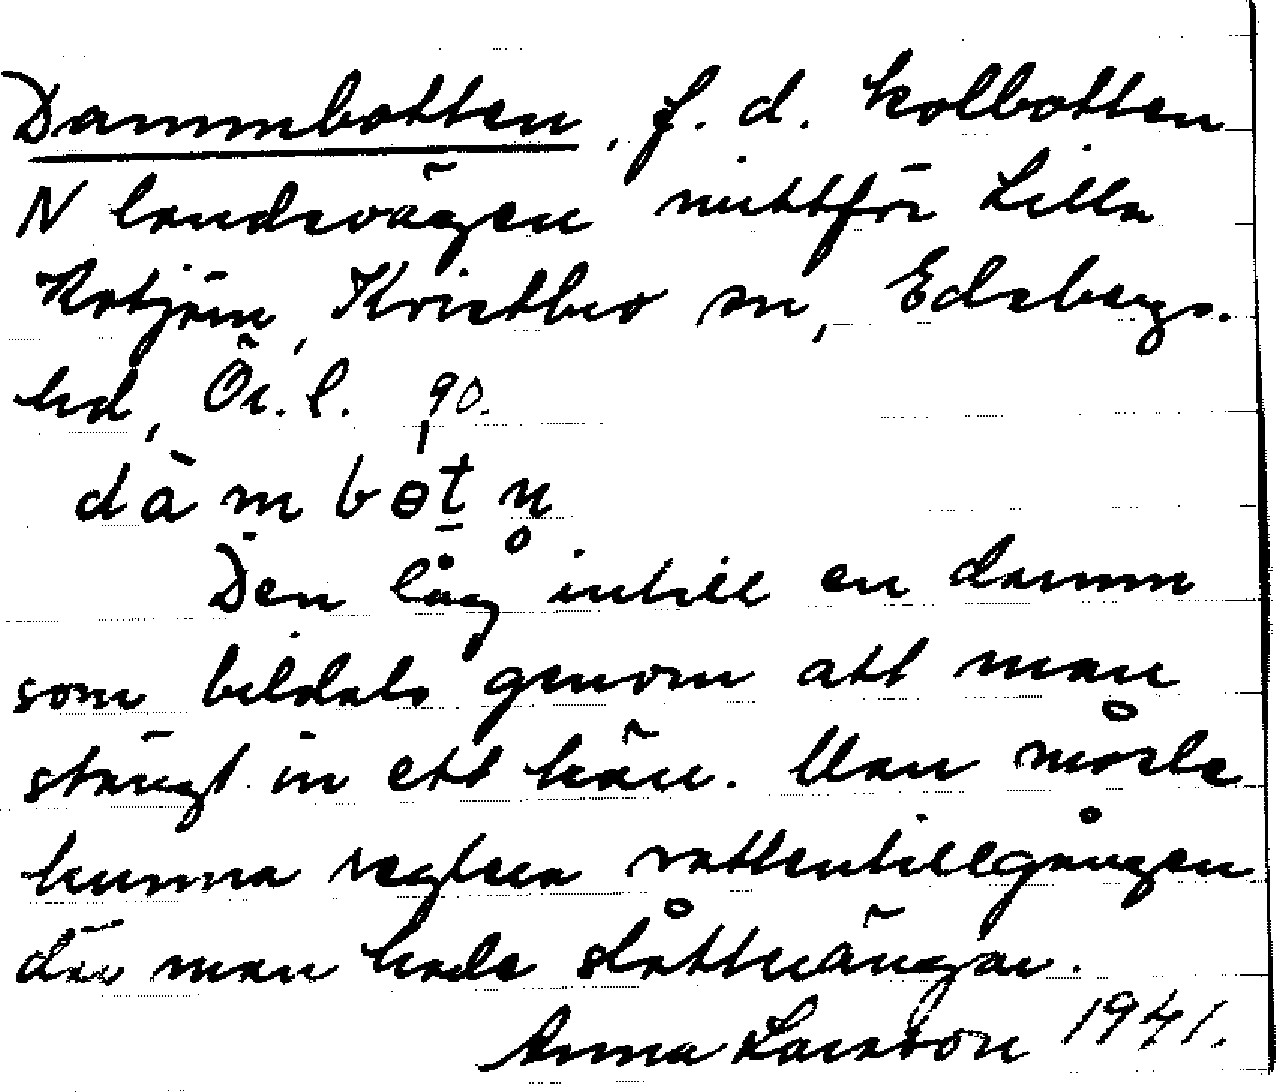 Dammbotten, f.d. kolbotten
N landsvägen mittför Lilla
Kotjärn, Kvistbro sn, Edsbergs.
hd, Ör.l. 90.
dàmbɵtn
Den låg intill en damm
som bildats genom att man
stängt in ett kärr. Man måste
kunna reglera vattentillgången
där man hade slåtterängar.
Anna Larsson 1941.